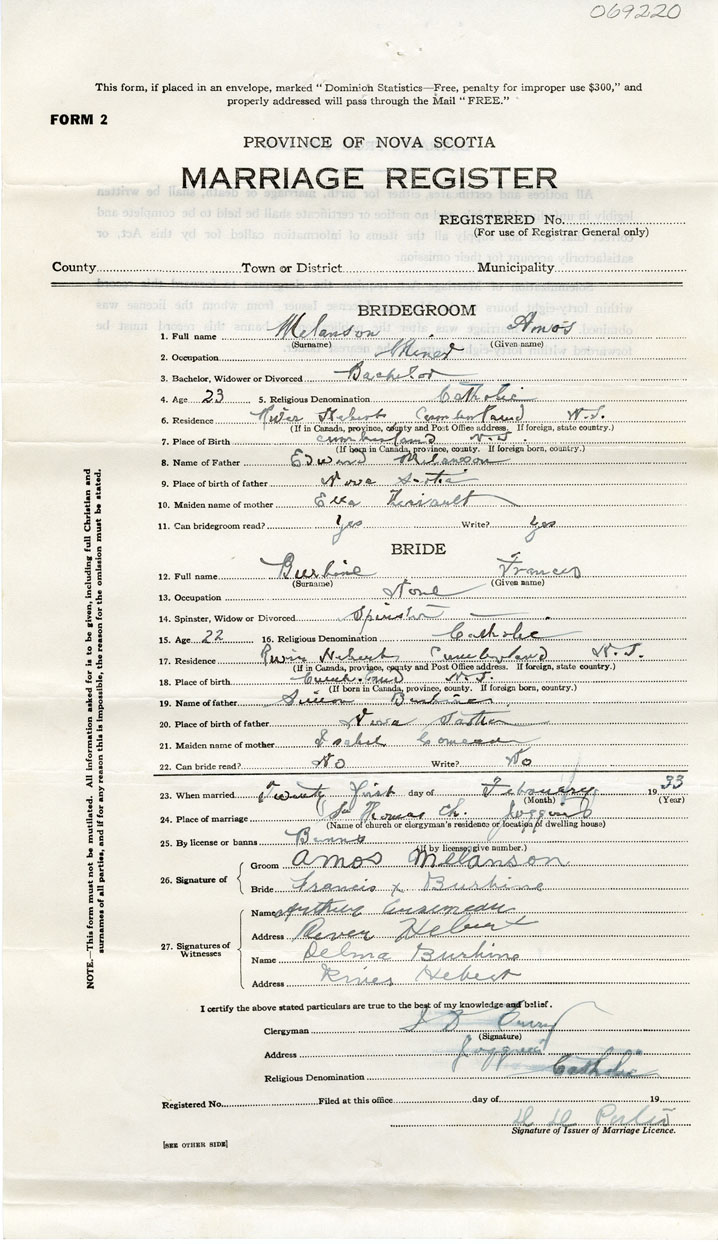 069220
This form, if placed in an envelope, marked "Dominion Statistics—Free, penalty for improper use $300," and
properly addressed will pass through the Mail "FREE."
FORM 2
PROVINCE OF NOVA SCOTIA
MARRIAGE REGISTER
REGISTERED No.
(For use of Registrar General only)
County Town or District Municipality
BRIDEGROOM
1. Full name Melanson Amos
(Surname) (Given name)
2. Occupation Miner
3. Bachelor, Widower or Divorced Bachelor
4. Age 23 5. Religious Denomination Catholic
6. Residence River Hebert Cumberland N.S.
(If in Canada, province, county and Post Office address. If foreign, state country.)
7. Place of Birth Cumberland N.S.
(If born in Canada, province, county. If foreign born, country.)
8. Name of Father Edward Melanson
9. Place of birth of father Nova Scotia
10. Maiden name of mother Ella Theriault
11. Can bridegroom read? Yes Write? Yes
BRIDE
12. Full name Burbine Frances
(Surname) (Given name)
13. Occupation None
14. Spinster, Widow or Divorced Spinster
15. Age 22 16. Religious Denomination Catholic
17. Residence River Hebert Cumberland N.S.
(If in Canada, province, county and Post Office address. If foreign, state country.)
18. Place of birth Cumberland N.S.
(If born in Canada, province, county. If foreign born, country.)
19. Name of father Simon Burbine
20. Place of birth of father Nova Scotia
21. Maiden name of mother Isabel Comeau
22. Can bride read? No Write? No
23. When married Twenty first day of February 1933
(Month) (Year)
24. Place of marriage St Thomas Ch. Joggins
(Name of church or clergyman's residence or location of dwelling house)
25. By license or banns Banns
(If by license, give number.)
26. Signature of Groom Amos Melanson
Bride Francis x Burbine
27. Signatures of Witnesses
Name
Address River Hebert
Name Delma Burbine
Address River Hebert
I certify the above stated particulars are true to the best of my knowledge and belief.
Clergyman
(Signature)
Address Joggins
Religious Denomination Catholic
Registered No. Filed at this office day of 19
Signature of Issuer of Marriage Licence.
[SEE OTHER SIDE]
NOTE.—This form must not be mutilated. All information asked for is to be given, including full Christian and
surnames of all parties, and if for any reason this is impossible, the reason for the omission must be stated.